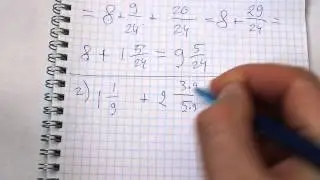 = 8 + 9/24 + 20/24 = 8 + 29/24 =
8 + 1 5/24 = 9 5/24
2) 1 1/9 + 2 3·9/5·9